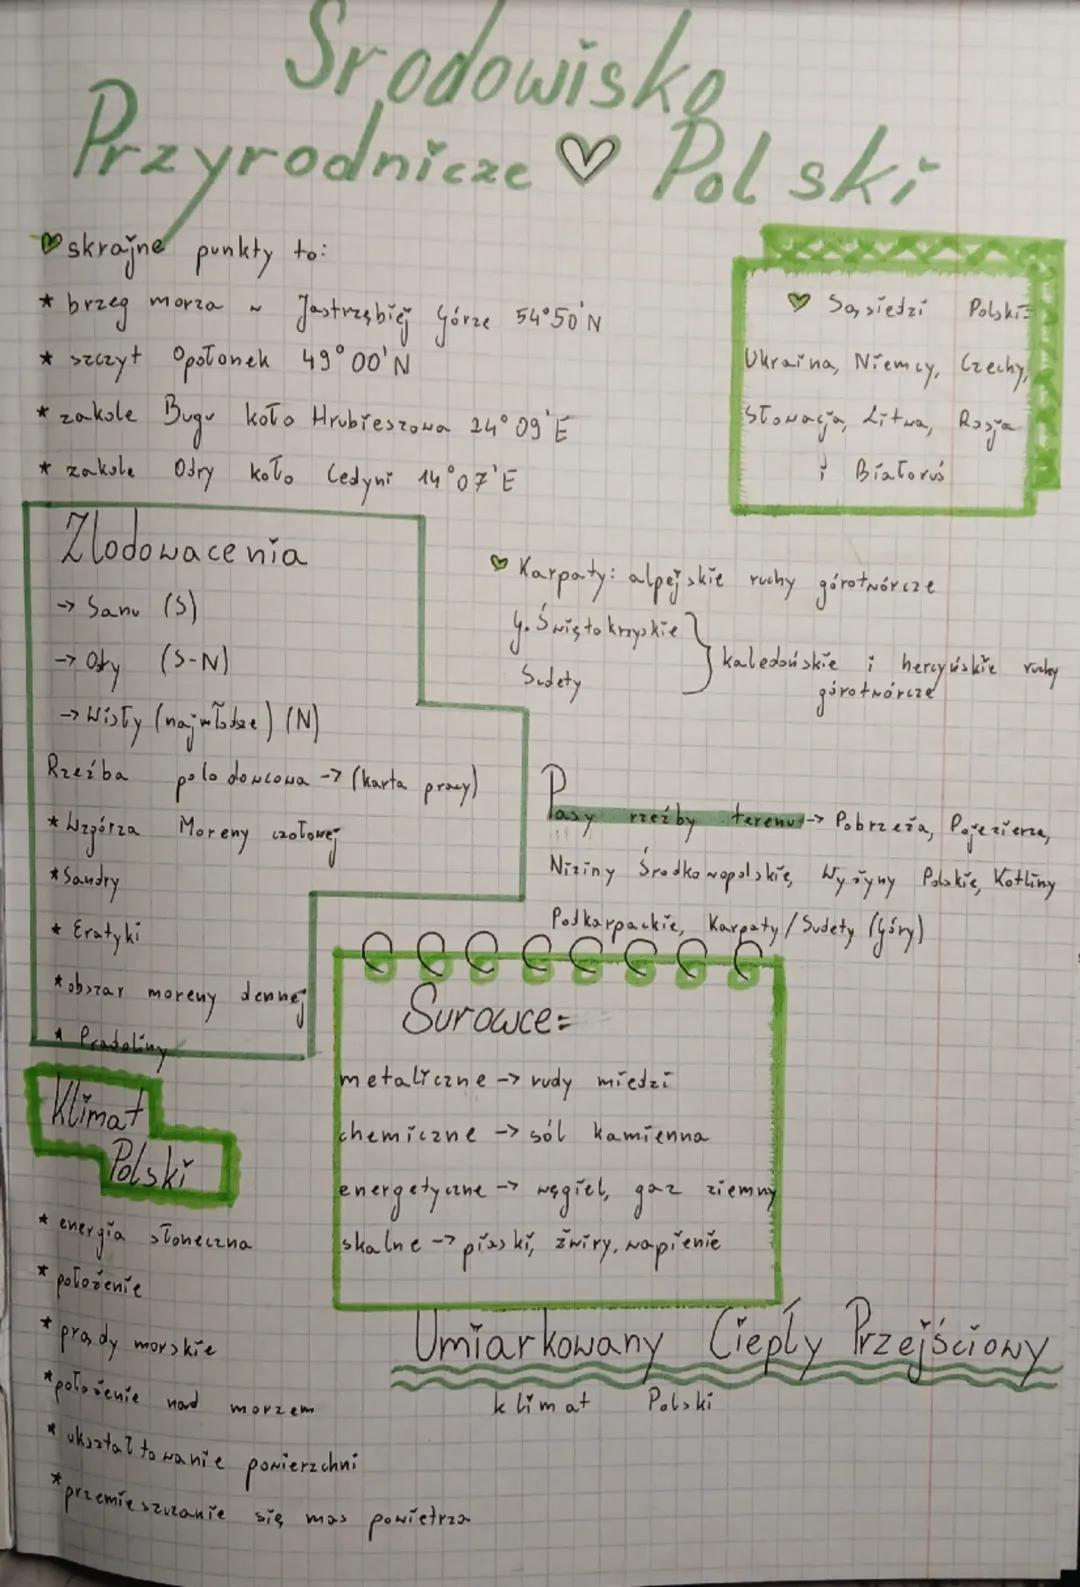 Środowisko
Przyrodnicze Polski
skrajne punkty to:
* brzeg morza w Jastrzębiej Górze 54°50'N
* szczyt Opołonek 49°00'N
* zakole Bugu koło Hrubieszowa 24°09'E
* zakole Odry koło Cedyni 14°07'E
Sąsiedzi Polski=
Ukraina, Niemcy, Czechy,
Słowacja, Litwa, Rosja
i Białoruś
Zlodowacenia
-> Sanu (S)
-> Odry (S-N)
-> Wisły (najmłodsze) (N)
Rzeźba polodowcowa -> (karta pracy)
* Wzgórza Moreny czołowej
* Sandry
* Eratyki
* obszar moreny dennej
* Pradoliny
Karpaty: alpejskie ruchy górotwórcze
G. Świętokrzyskie
Sudety
kaledońskie i hercyńskie ruchy
górotwórcze
Pasy rzeźby terenu -> Pobrzeża, Pojezierza,
Niziny Środkowopolskie, Wyżyny Polskie, Kotliny
Podkarpackie, Karpaty/Sudety (Góry)
Surowce=
metaliczne -> rudy miedzi
chemiczne -> sól kamienna
energetyczne -> węgiel, gaz ziemny
skalne -> piaski, żwiry, wapienie
Klimat
Polski
* energia słoneczna
* położenie
* prądy morskie
* położenie nad morzem
* ukształtowanie powierzchni
* przemieszczanie się mas powietrza
Umiarkowany Ciepły Przejściowy
klimat Polski